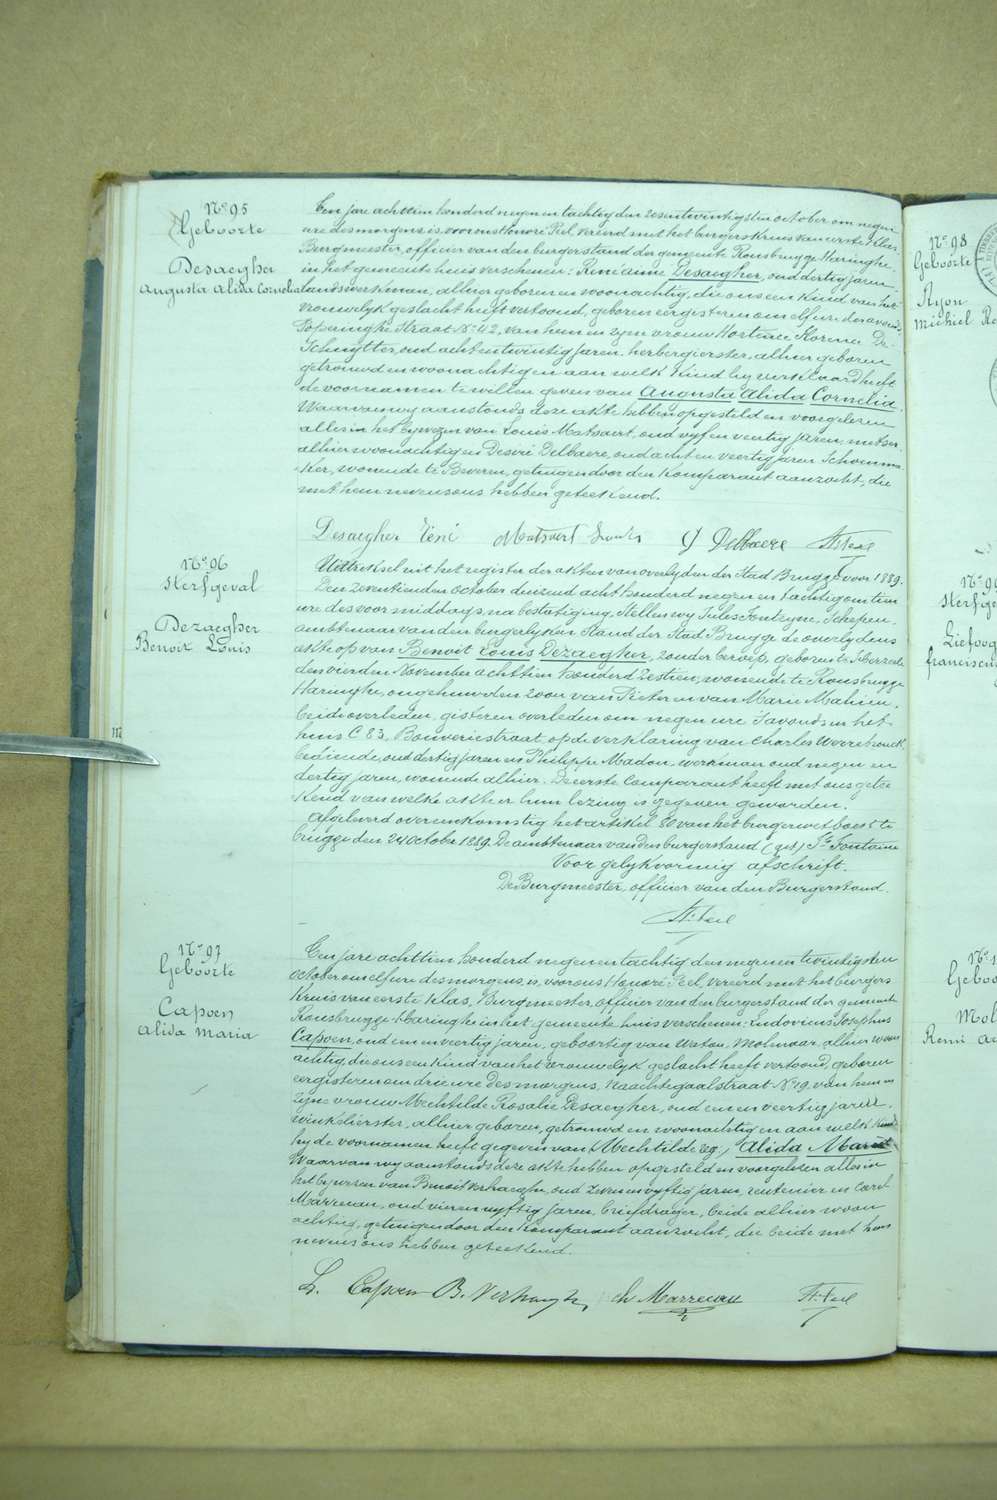 No 95
Geboorte
Desaegher
Augusta Alida Cornelia
Een jare achttien honderd negen en tachtig den zesentwintigsten october om negen
ure des morgens, is voor ons Honoré Peel, vereerd met het burgerskruis van eerste klas,
Burgmeester, officier van den burgerstand der gemeente Rousbrugge Haringhe,
in het gemeente huis verschenen: René anne Desaegher, oud dertig jaren,
landswerkman, alhier geboren en woonachtig, die ons een kind van het
vrouwelyk geslacht heeft vertoond, geboren eergisteren om elf ure des avonds,
Poperinghe straat No 42, van hem en zyne vrouw Hortence Korena De
Schuytter, oud acht en twintig jaren, herbergierster, alhier geboren
getrouwd en woonachtig en aan welk kind hy verklaard heeft
de voornamen te willen geven van Augusta Alida Cornelia.
Waarvan wy aanstonds deze akte hebben opgesteld en voorgelezen
alles in het bywezen van Louis Matsaert, oud vyf en veertig jaren, metser
alhier woonachtig en Desiré Delbaere, oud acht en veertig jaren Schoenma
ker, wonende te Beveren, getuigen door den komparant aanzocht, die
met hem nevens ons hebben geteekend.
Desaegher René Matsaert Louis D Delbaere H. Peel
No 96
Sterfgeval
Dezaegher
Benoit Louis
Uittreksel uit het register der akten van overlyden der Stad Brugge voor 1889.
Den zeventienden october duizend acht honderd negen en tachtig om tien
ure des voormiddags, na bestatiging, Stellen wy Jules Fonteyne, Schepen
ambtenaar van den burgerlyken Stand der Stad Brugge de overlydens
akte op van Benoit Louis Dezaegher, zonder beroep, geboren te Herzeele
den vierden November achttien honderd zestien, wonende te Rousbrugge
Haringhe, ongehuwden zoon van Pieter en van Marie Mahieu,
beide overleden, gisteren overleden om negen ure s'avonds in het
huis C 83, Bouveriestraat op de verklaring van Charles
bediende, oud dertig jaren en Philippe Madou, werkman oud negen en
dertig jaren, wonende alhier. De eerste Comparant heeft met ons getee
kend van welke akte er hun lezing is gegeven geworden.
Afgeleverd overeenkomstig het artikel 80 van het burgerwetboek te
brugge den 24 october 1889. De ambtenaar van den burgerstand (get) Js Fontaine
Voor gelykvormig afschrift.
De Burgmeester, officier van den Burgerstand.
H. Peel
No 97
Geboorte
Capoen
Alida Maria
Een jare achttien honderd negen en tachtig den negen en twintigsten
October om elf ure des morgens, is voor ons Honoré Peel, vereerd met het burgers
kruis van eerste klas, Burgmeester, officier van den burgerstand der gemeente
Rousbrugge-Haringhe in het gemeente huis verschenen: Ludovicus Josephus
Capoen, oud een en veertig jaren, geboortig van Watou, Molenaar, alhier woon
achtig, die ons een kind van het vrouwelyk geslacht heeft vertoond, geboren
eergisteren om drie ure des morgens, Naachtegaalstraat No 19, van hem en
zyne vrouw Mechtilde Rosalie Desaegher, oud een en veertig jaren,
winkelierster, alhier geboren, getrouwd en woonachtig en aan welk kind
hy de voornamen heeft gegeven van (Mechtilde) Alida Maria
Waarvan wy aanstonds deze akte hebben opgesteld en voorgelezen alles in
het bywezen van Benoit Verhaeghe, oud zeven en vyftig jaren, rentenier en Carel
Marreeuw, oud vier en vyftig jaren, briefdrager, beide alhier woon
achtig, getuigen door den komparant aanzocht, die beide met hem
nevens ons hebben geteekend.
L. Capoen B. Verhaeghe ch Marreeuw H. Peel
112
No 98
Geboorte
Ryon
Michiel Re
No 99
Sterfge
Liefoog
francisc
No 1
Geboo
Mol
Remi A